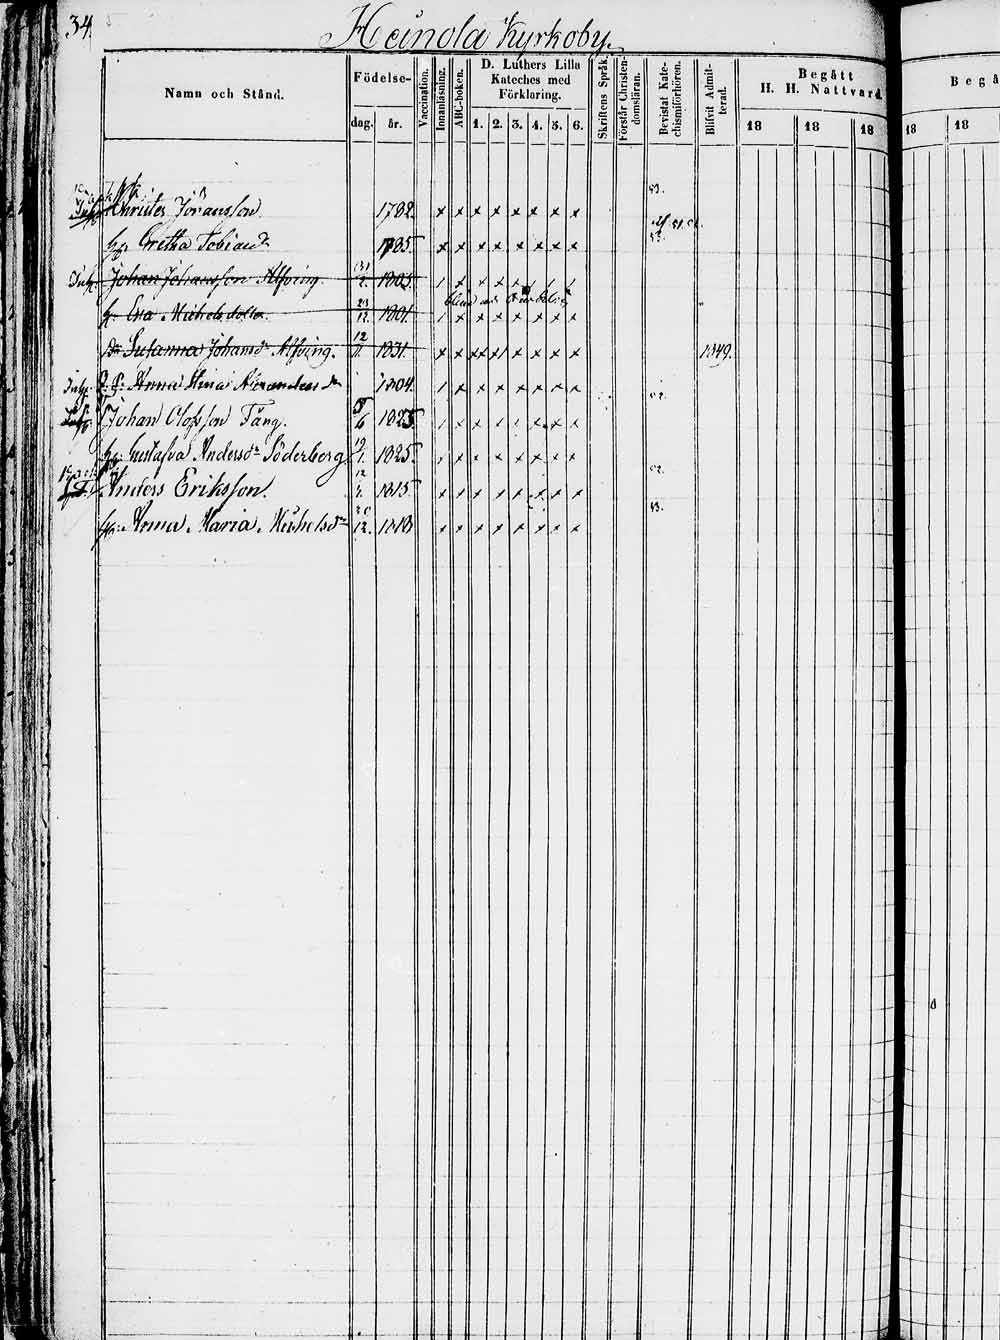 34.
Heinola Kyrkoby.
Namn och Stånd.
Födelse-
dag.
år.
Vaccination.
Innanläsning.
ABC-boken.
D. Luthers Lilla
Kateches med
Förklaring.
1. 2. 3. 4. 5. 6.
Skriftens Språk.
Förstår Christen-
domsläran.
Bevistat Kate-
chismiförhören.
Blifvit Admit-
terad.
Begått
H. H. Nattvard.
18 18 18
Begå
18 18
53.
Christer Jöransson 1782. x x x x x x x x
51. 52.
Hu. Gretha Tobiasdr 1785. x x x x x x x x
Inh. Johan Johansson Alfving. 1803.
h. Eva Michelsdotter. 23/12. 1801.
dr Susanna Johansdr Alfving. 12/11. 1831. x x x x x x x x 1849.
Inh. Anna Stina Alexandersdr 1804.
52.
Johan Olofsson Tång. 1823.
hu. Gustafva Andersdr Söderberg 1825.
52.
Anders Eriksson. 1815. x x x x x x x x
53.
hu. Anna Maria Michelsdr 12. 1818 x x x x x x x x